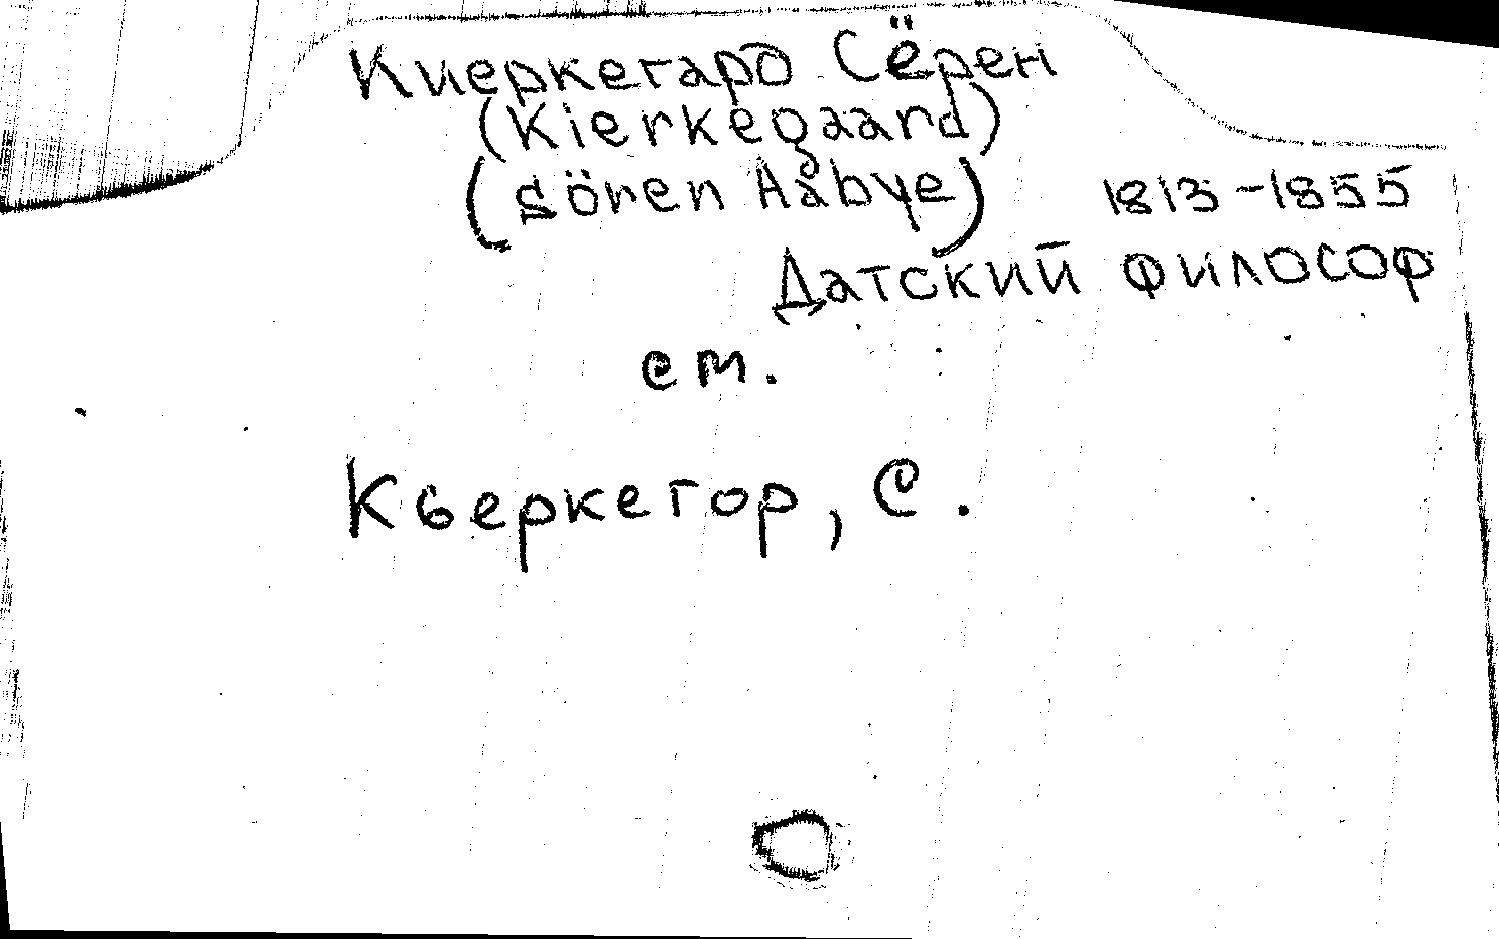 Киеркегард Сёрен
(Kierkegaard)
(Sören Aabye) 1813-1855
Датский философ
см.
Кьеркегор, С.